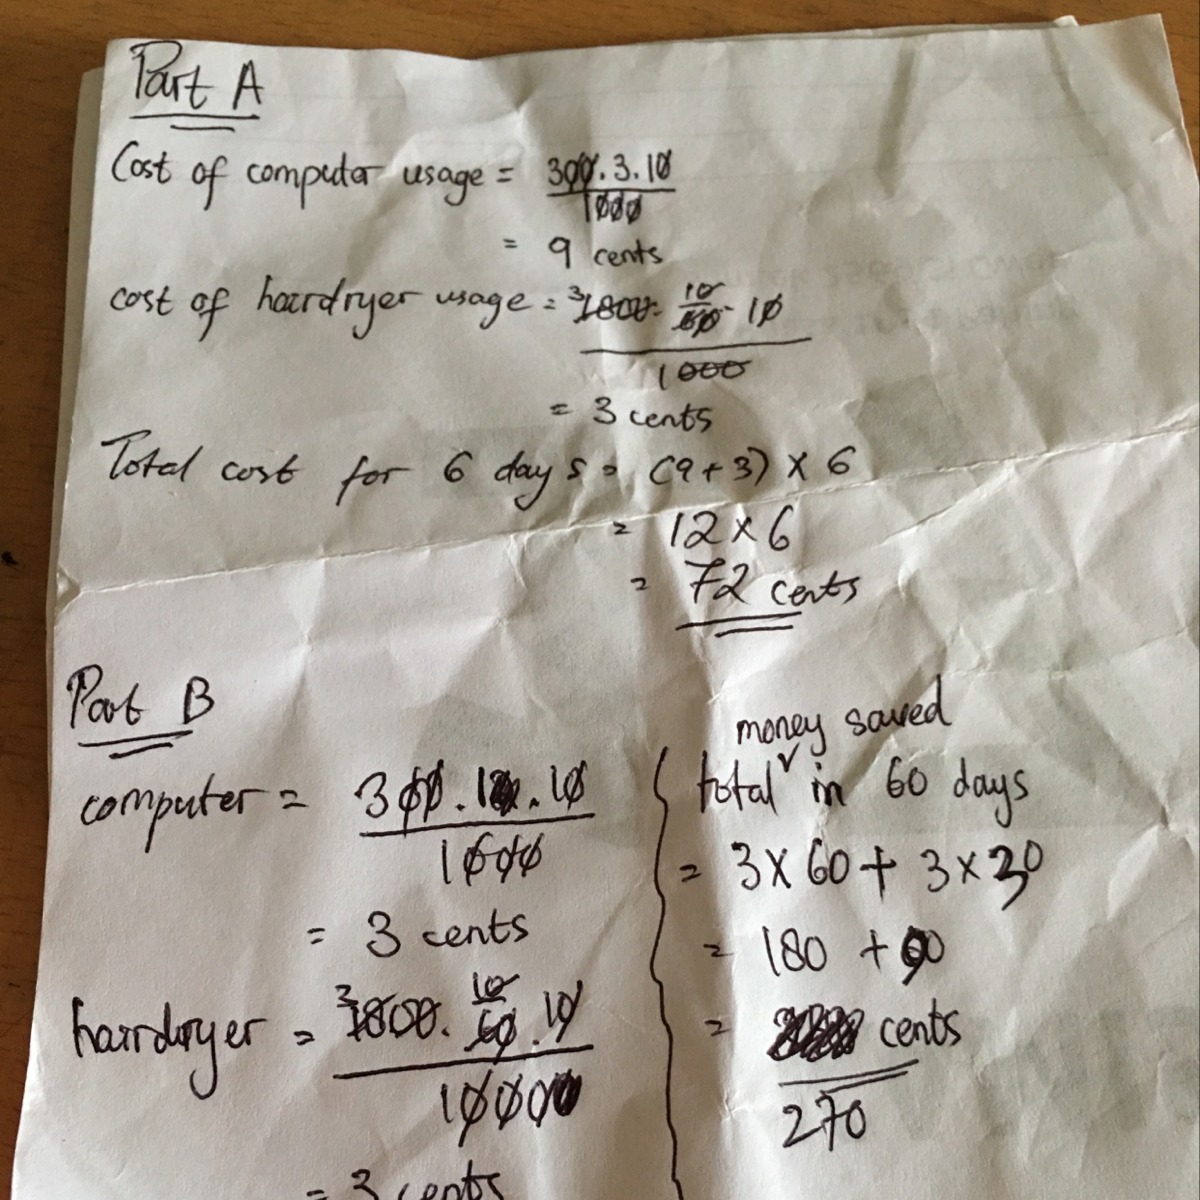 Part A
Cost of computer usage = 300.3.10
1000
= 9 cents
cost of hairdryer usage = 3 1800. 10/60 . 10
1000
= 3 cents
Total cost for 6 days = (9+3) × 6
= 12 × 6
= 72 cents
Part B
computer = 300 . 1 . 10
1000
= 3 cents
hairdryer = 3 1800. 10/60 . 10
1000
= 3 cents
money saved
total in 60 days
= 3 × 60 + 3 × 30
= 180 + 90
= cents
270